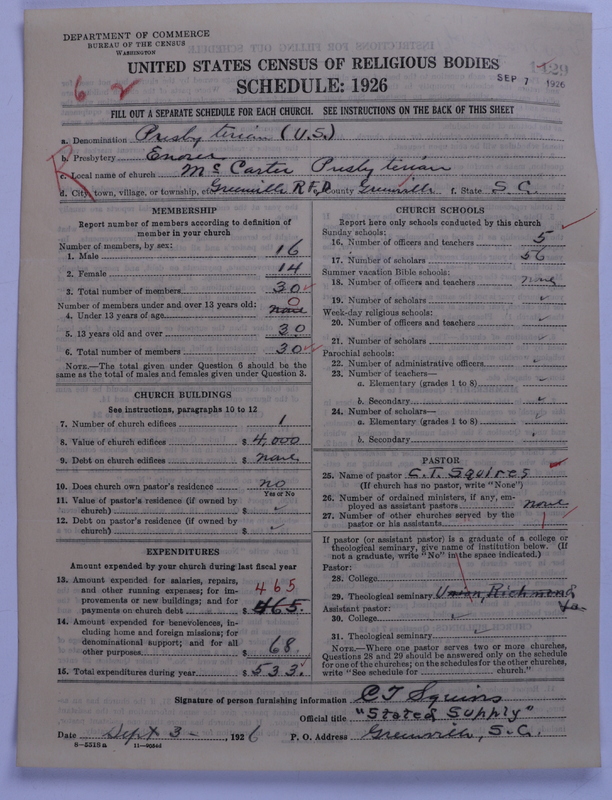 DEPARTMENT OF COMMERCE
BUREAU OF THE CENSUS
WASHINGTON
UNITED STATES CENSUS OF RELIGIOUS BODIES
SCHEDULE: 1926
SEP 7 1926
1429
6 2
FILL OUT A SEPARATE SCHEDULE FOR EACH CHURCH. SEE INSTRUCTIONS ON THE BACK OF THIS SHEET
a. Denomination Presbyterian (U.S.)
b. Presbytery Enoree
c. Local name of church McCarter Presbyterian
d. City, town, village, or township, etc. Greenville RFD e. County Greenville f. State S.C.
R
MEMBERSHIP
Report number of members according to definition of member in your church
Number of members, by sex:
1. Male 16
2. Female 14
3. Total number of members 30
Number of members under and over 13 years old: 0
4. Under 13 years of age none
5. 13 years old and over 30
6. Total number of members 30
NOTE.—The total given under Question 6 should be
same as the total of males and females given under Question 3.
CHURCH BUILDINGS
See instructions, paragraphs 10 to 12
7. Number of church edifices 1
8. Value of church edifices $ 4,000
9. Debt on church edifices $ none
10. Does church own pastor's residence? no
Yes or No
11. Value of pastor's residence (if owned by
church) $ ✓
12. Debt on pastor's residence (if owned by
church) $ ✓
EXPENDITURES
Amount expended by your church during last fiscal year
13. Amount expended for salaries, repairs,
and other running expenses; for im-
provements or new buildings; and for
payments on church debt $ 465.
465
14. Amount expended for benevolences, in-
cluding home and foreign missions; for
denominational support; and for all
other purposes $ 68.
15. Total expenditures during year $ 533.
CHURCH SCHOOLS
Report here only schools conducted by this church
Sunday schools:
16. Number of officers and teachers 5
17. Number of scholars 56
Summer vacation Bible schools:
18. Number of officers and teachers none
19. Number of scholars ✓
Week-day religious schools:
20. Number of officers and teachers ✓
21. Number of scholars ✓
Parochial schools:
22. Number of administrative officers ✓
23. Number of teachers—
a. Elementary (grades 1 to 8) ✓
b. Secondary ✓
24. Number of scholars—
a. Elementary (grades 1 to 8) ✓
b. Secondary
PASTOR
25. Name of pastor C.T. Squires
(If church has no pastor, write "None")
26. Number of ordained ministers, if any, em-
ployed as assistant pastors none
27. Number of other churches served by the
pastor or his assistants
If pastor (or assistant pastor) is a graduate of a college or
theological seminary, give name of institution below. (If
not a graduate, write "No" in the space indicated.)
Pastor:
28. College
29. Theological seminary Union, Richmond
Va.
Assistant pastor:
30. College ✓
31. Theological seminary ✓
NOTE.—Where one pastor serves two or more churches,
Questions 28 and 29 should be answered only on the schedule
for one of the churches; on the schedules for the other churches,
write "See schedule for ------ church."
Signature of person furnishing information CT Squires
Official title "Stated Supply"
Date Sept 3- , 1926 P. O. Address Greenville, S.C.
8-5518a 11-9034d